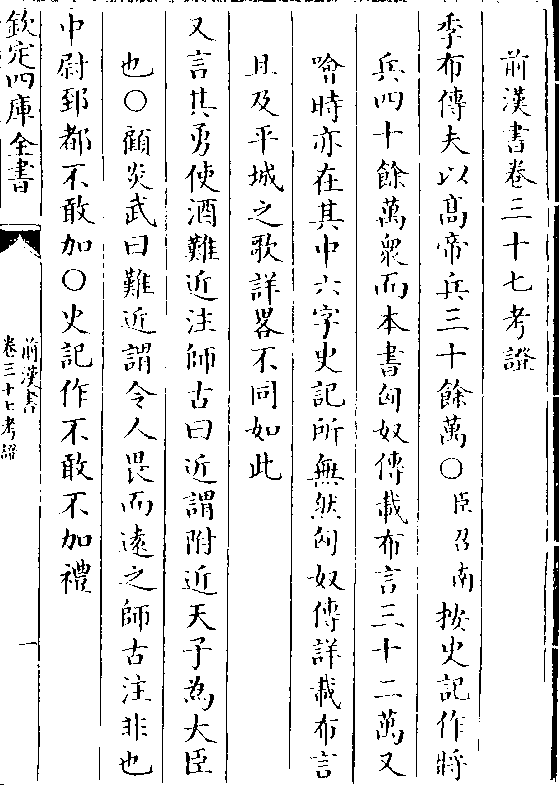 前漢書卷三十七考證
季布傳夫以髙帝兵三十餘萬○臣召南按史記作將
兵四十餘萬衆而本書匈奴傳載布言三十二萬又
噲時亦在其中六字史記所無然匈奴傳詳載布言
且及平城之歌詳畧不同如此
又言其勇使酒難近注師古曰近謂附近天子為大臣
也○顧炎武曰難近謂令人畏而遠之師古注非也
中尉郅都不敢加○史記作不敢不加禮
欽定四庫全書
前漢書
卷三十七考證
一